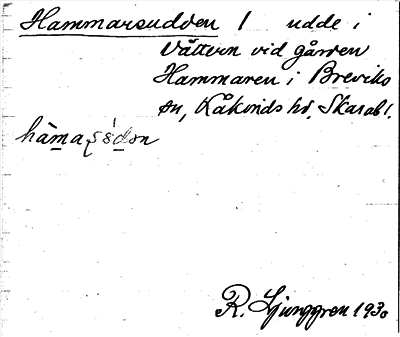 Hammarsudden / udde i
Vättern vid gården
Hammaren i Breviks
sn, Kåkinds hd, Skarab l.
R. Ljunggren 1930